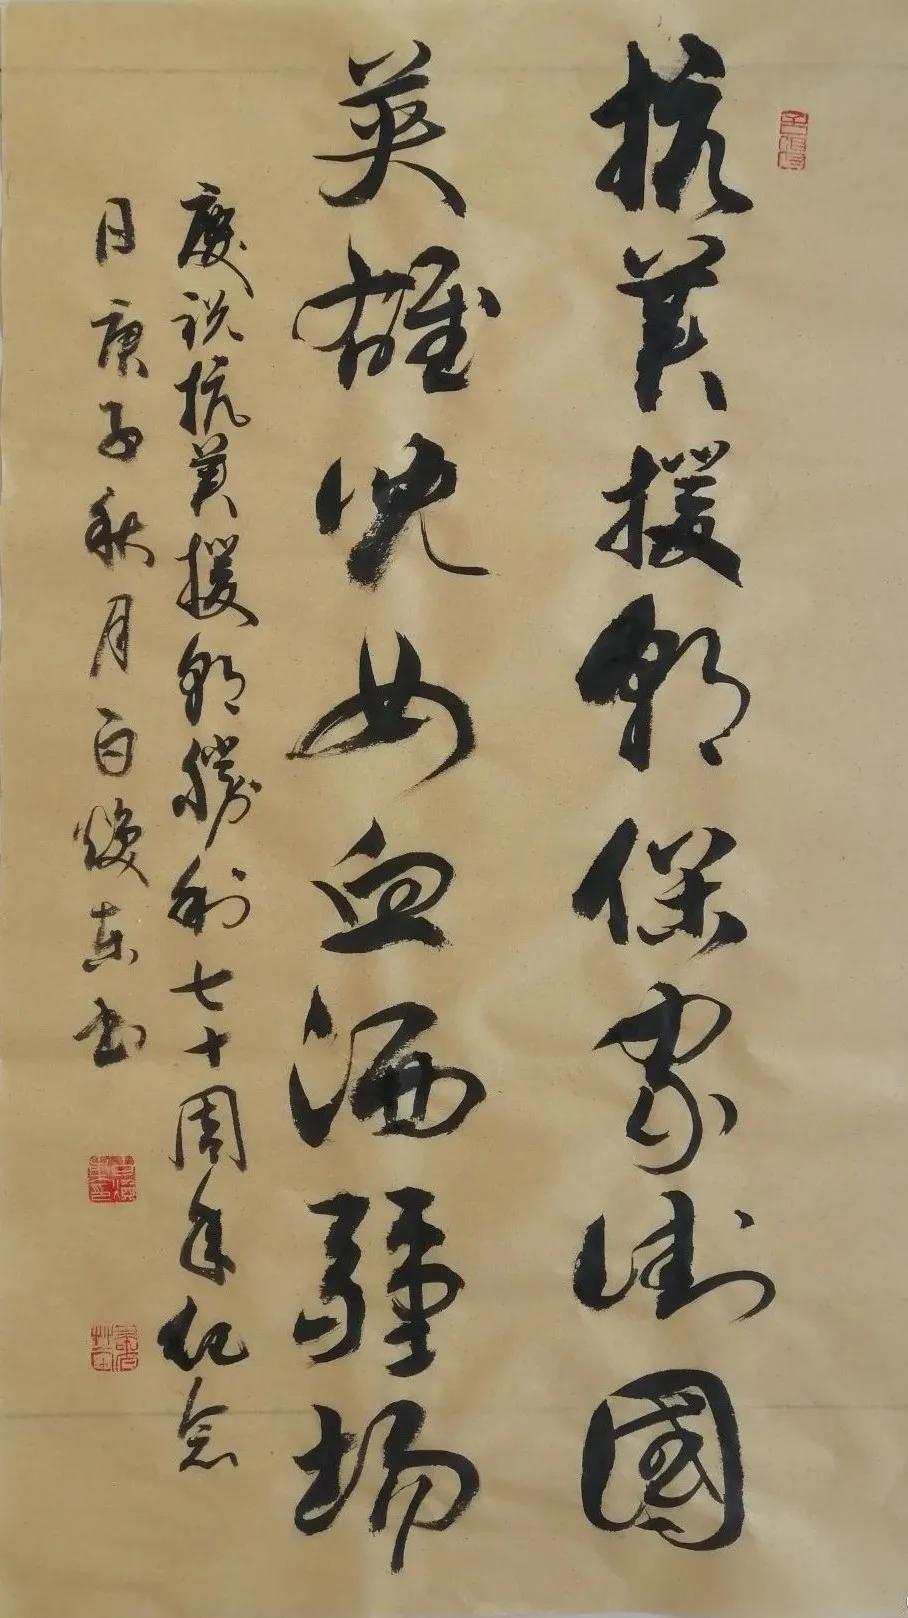 抗美援朝保家衛國
英雄兒女血洒疆場
慶祝抗美援朝勝利七十周年纪念
日庚子秋月白焕东书